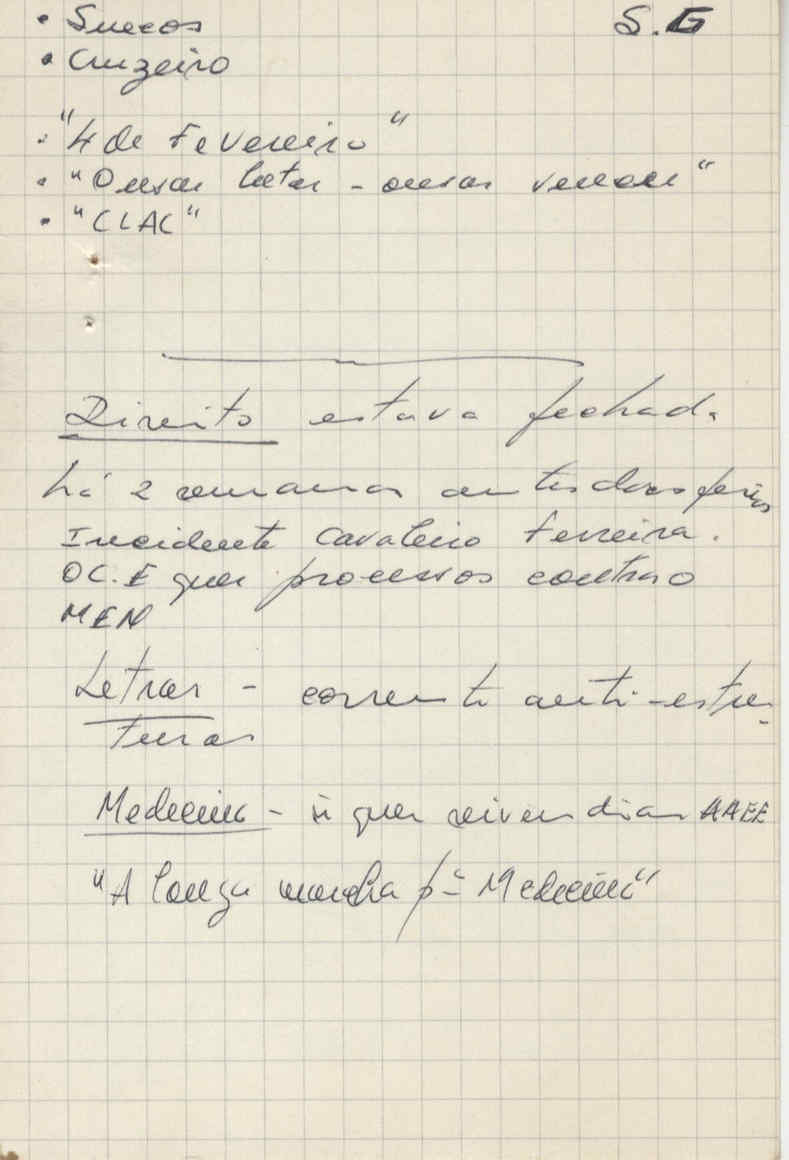 • Suecos S.G
• Cruzeiro
• "4 de Fevereiro"
• "Ousar lutar - ousar vencer"
• "CLAC"
Direito estava fechada
há 2 semanas antes das férias
Incidente Cavaleiro Ferreira.
O C.E quer processos contra o
MEN
Letras - corrente anti-estru-
turas
Medecina - ñ quer reivendicar AAEE
"A longa marcha pª Medecina"